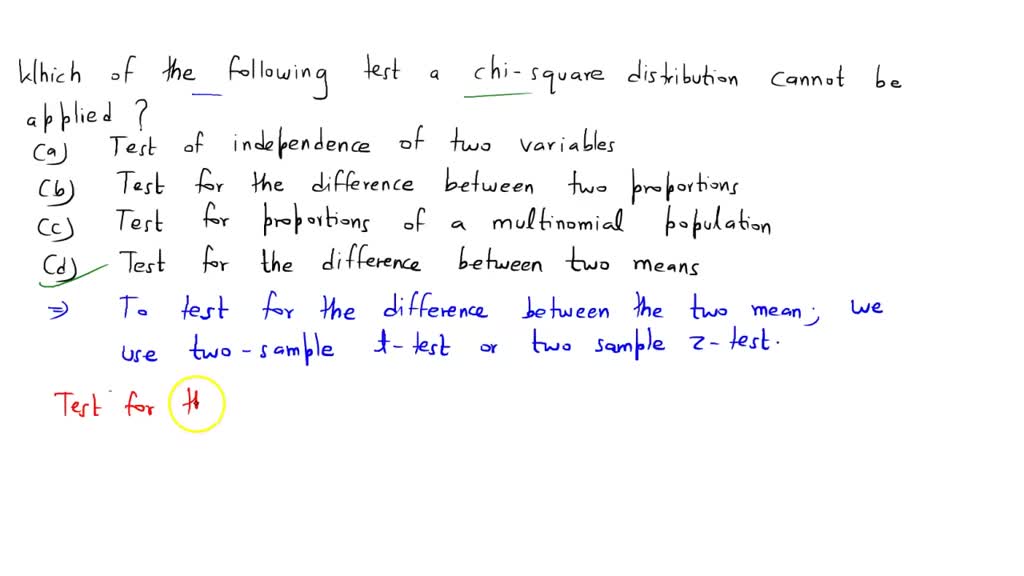 Which of the following test a chi-square distribution cannot be
applied ?
(a) Test of independence of two variables
(b) Test for the difference between two proportions
(c) Test for proportions of a multinomial population
(d) Test for the difference between two means
⇒ To test for the difference between the two mean; we
use two-sample t-test or two sample z-test.
Test for th